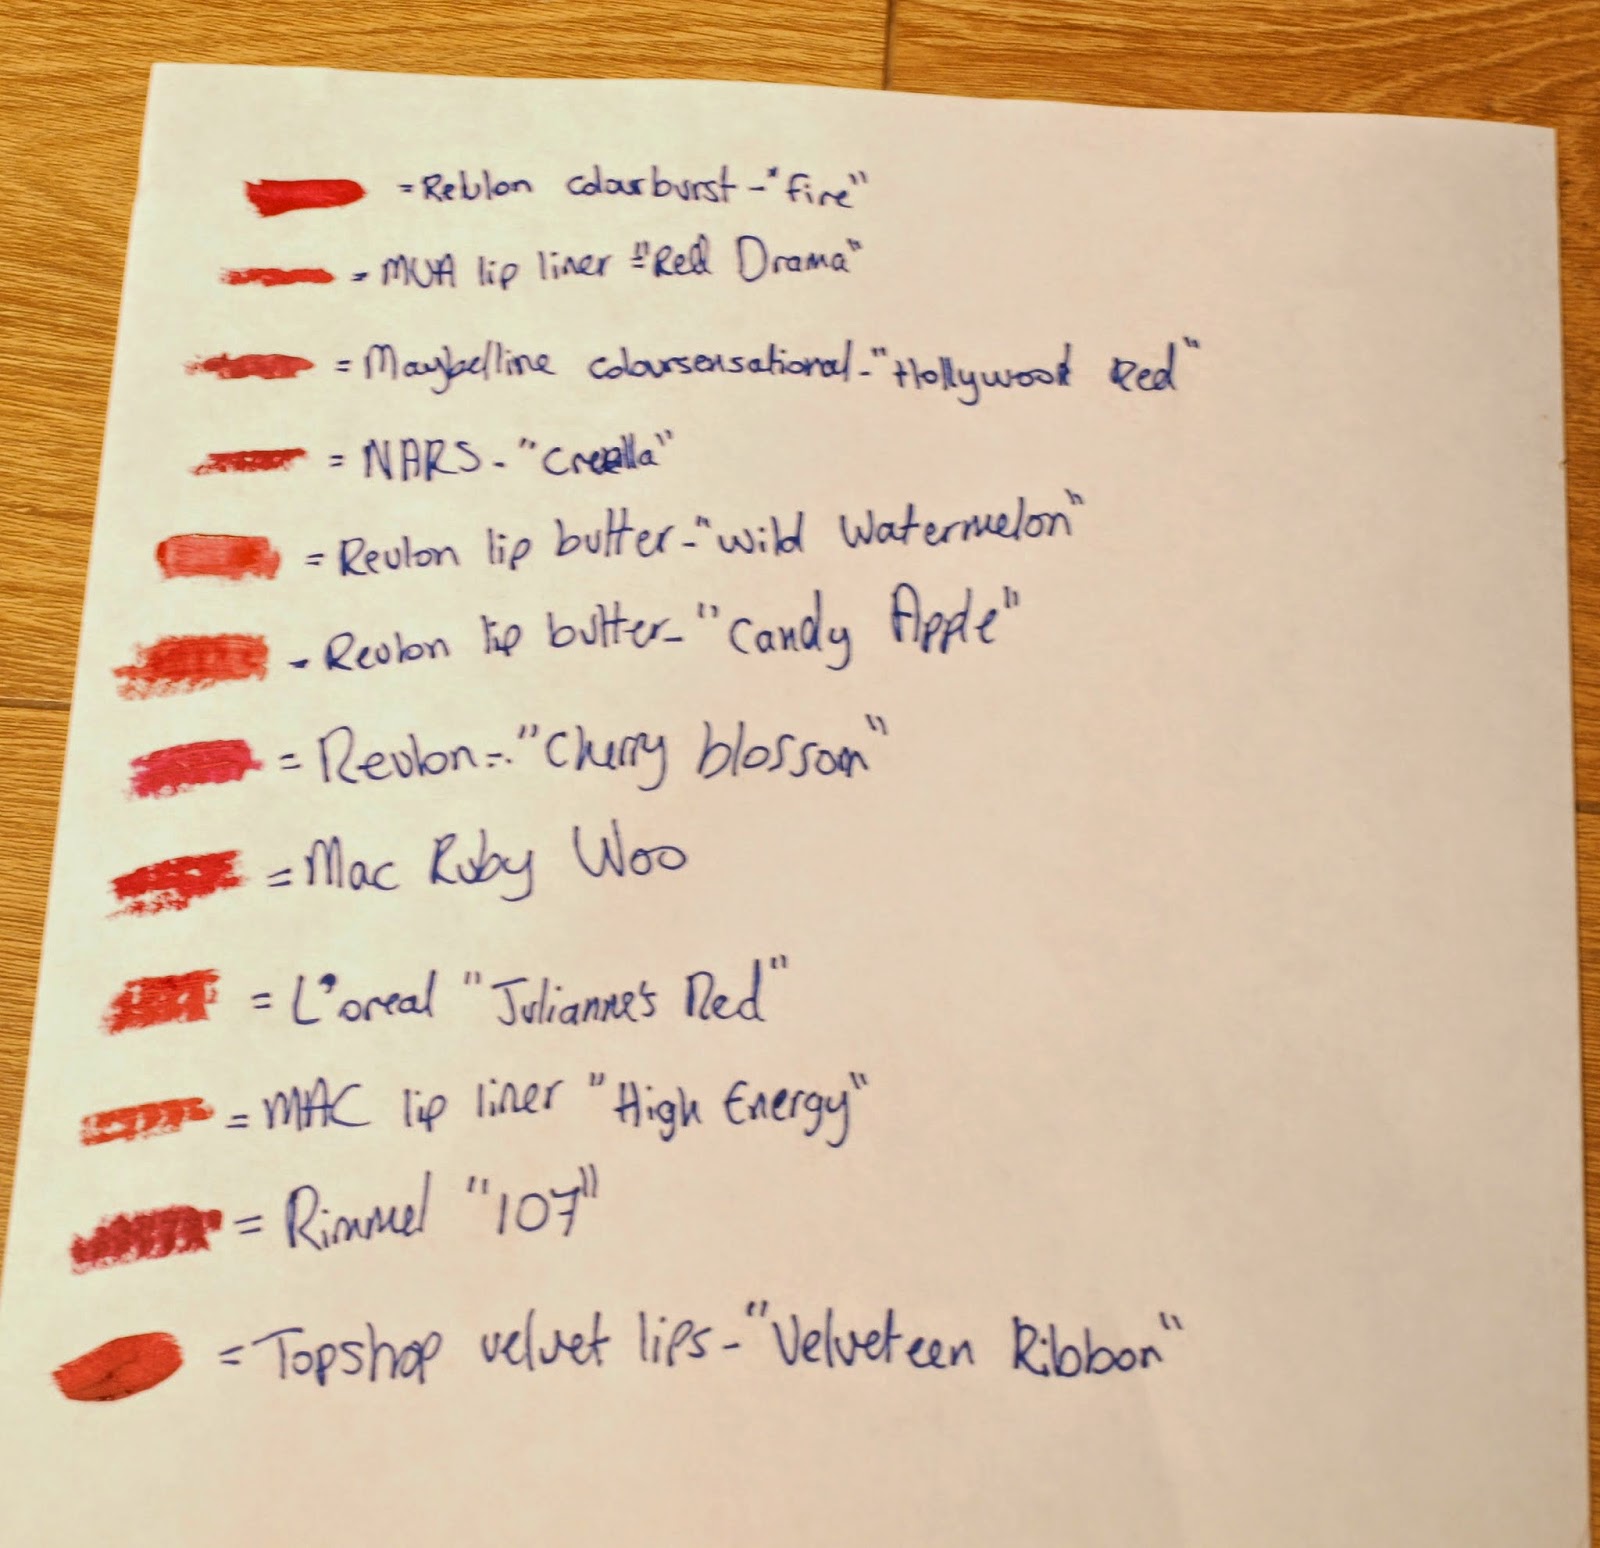 = Revlon colourburst - "fire"
= MUA lip liner - "Red Drama"
= Maybelline coloursensational - "Hollywood Red"
= NARS - "Cruella"
= Revlon lip butter - "Wild Watermelon"
- Revlon lip butter - "Candy Apple"
= Revlon - "Cherry blossom"
= Mac Ruby Woo
= L'oreal "Julianne's Red"
= MAC lip liner "High Energy"
= Rimmel "107"
= Topshop velvet lips - "Velveteen Ribbon"